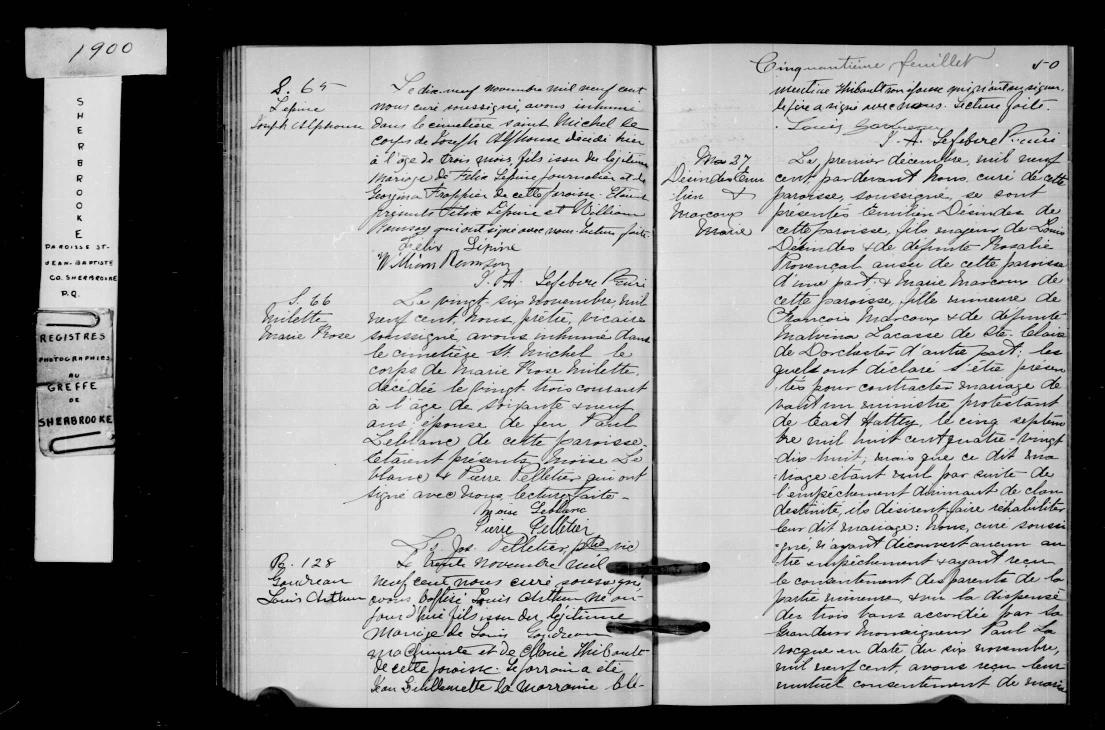 1900
S
H
E
R
B
R
O
O
K
E
PAROISSE ST-
JEAN-BAPTISTE
CO. SHERBROOKE
P.Q.
REGISTRES
PHOTOGRAPHIES
AU
GREFFE
DE
SHERBROOKE
S. 65
Lépine
Joseph Alphonse
Le dix-neuf novembre mil neuf cent
nous curé soussigné, avons inhumé
dans le cimetière saint Michel le
corps de Joseph Alphonse décédé hier
à l'âge de trois mois, fils issu du légitime
mariage de Félix Lépine journalier et de
Georgina Frappier de cette paroisse. Etaient
présents Félix Lépine et William
qui ont signé avec nous. Lecture faite.
Felix Lépine
William
J. A. Lefebvre Ptre curé
S. 66
Milette
Marie Rose
Le vingt six novembre, mil
neuf cent nous, prêtre, vicaire
soussigné, avons inhumé dans
le cimetière St. Michel le
corps de Marie Rose Milette
décédée le vingt trois courant
à l'âge de soixante & neuf
ans épouse de feu Paul
Leblanc de cette paroisse.
Etaient présents Moïse Le
blanc & Pierre Pelletier qui ont
signé avec nous, lecture faite -
Moise Leblanc
Pierre Pelletier
Jos. Pelletier, ptre vic
B. 128
Goudreau
Louis Arthur
Le trente novembre mil
neuf cent nous curé soussigné
avons baptisé Louis Arthur né au-
jourd'hui fils issu du légitime
mariage de Louis Goudreau
machiniste et de Marie Thibault
de cette paroisse. Le parrain a été
Jean Guillemette la marraine Clé-
Cinquantième feuillet 50
mentine Thibault son épouse qui n'ont su signer.
Le père a signé avec nous. Lecture faite.
Louis
J. A. Lefebvre Ptre curé
M 37
Désindes Emi
lien &
Marcoux
Marie
Le premier décembre, mil neuf
cent, par devant Nous, curé de cette
paroisse, soussigné, se sont
présentés Emilien Désindes de
cette paroisse, fils majeur de Louis
Désindes & de défunte Rosalie
Provençal aussi de cette paroisse
d'une part, & Marie Marcoux de
cette paroisse, fille mineure de
François Marcoux & de défunte
Malvina Lacasse de Ste. Claire
de Dorchester d'autre part; les
quels ont déclaré s'être présen
tés pour contracter mariage de
vant un ministre protestant
de East Hatley, le cinq septem
bre mil huit cent quatre-vingt
dix huit, mais que ce dit ma
riage étant nul par suite de
l'empêchement dirimant de clan
destinité, ils désirent faire réhabiliter
leur dit mariage: Nous, curé soussi
gné, n'ayant découvert aucun au
tre empêchement & ayant reçu
le consentement des parents de la
partie mineure, & vu la dispense
des trois bans accordée par Sa
Grandeur Monseigneur Paul La
rocque en date du six novembre,
mil neuf cent, avons reçu leur
mutuel consentement de maria